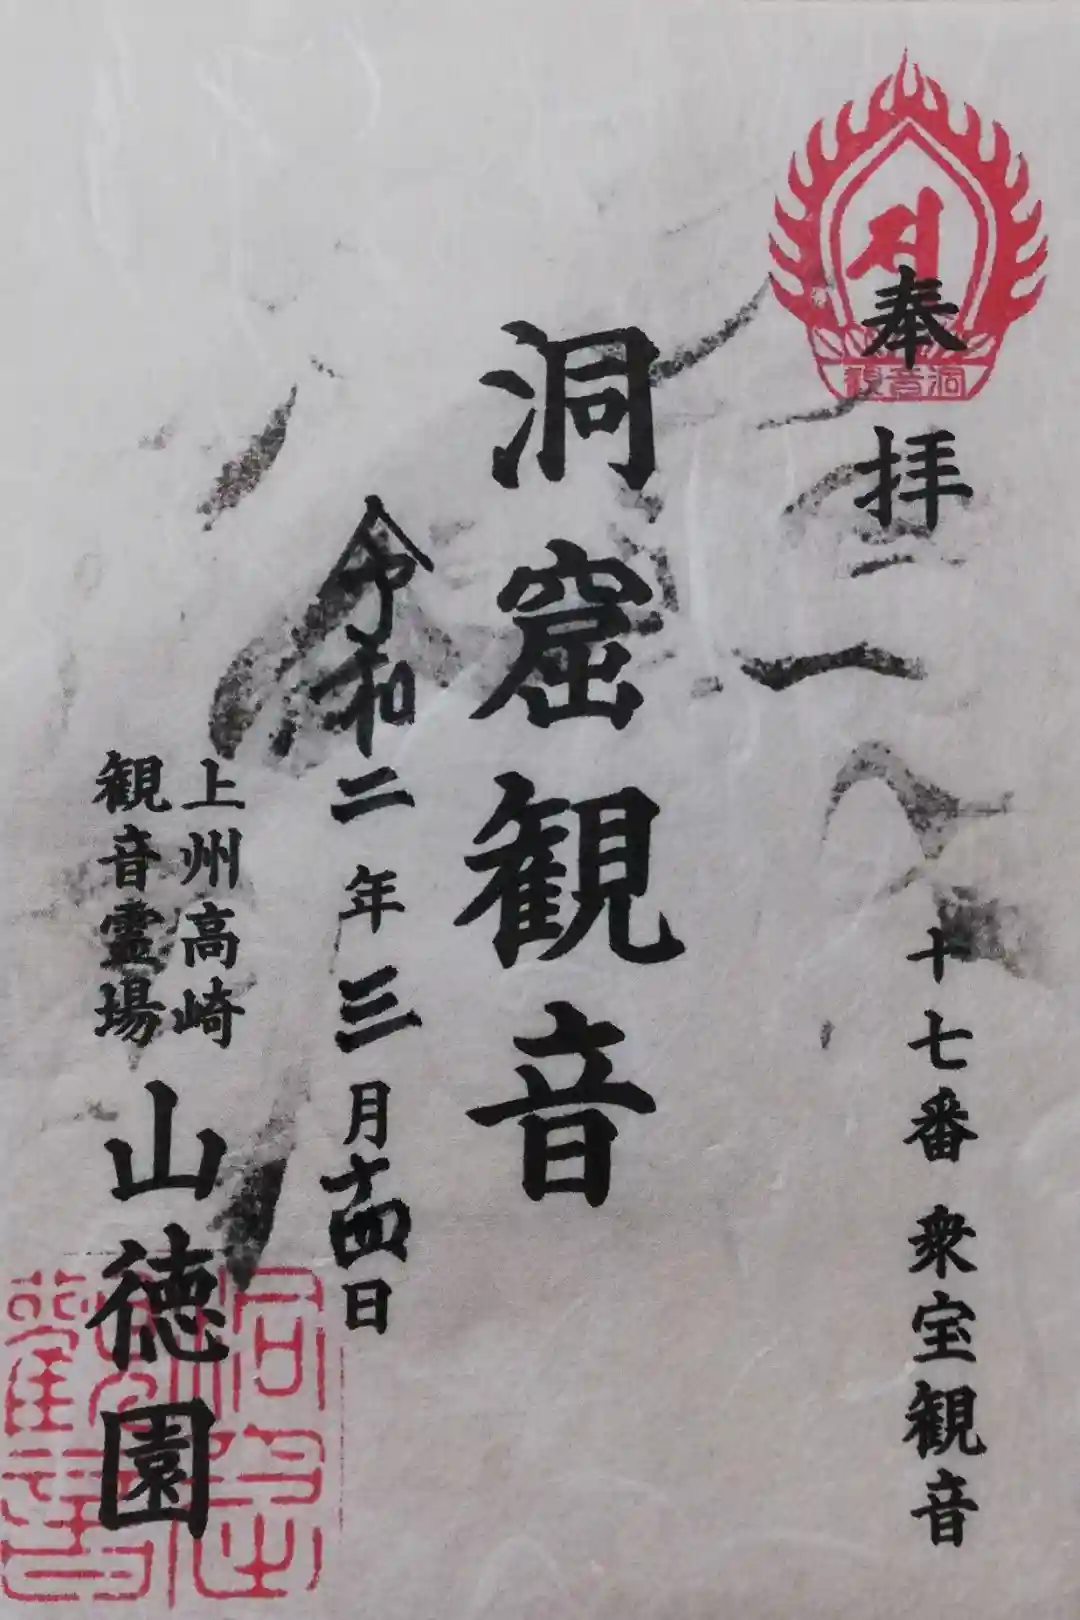 奉拝
十七番 衆宝観音
洞窟観音
令和二年三月十四日
上州高崎
観音霊場
山徳園
観音洞